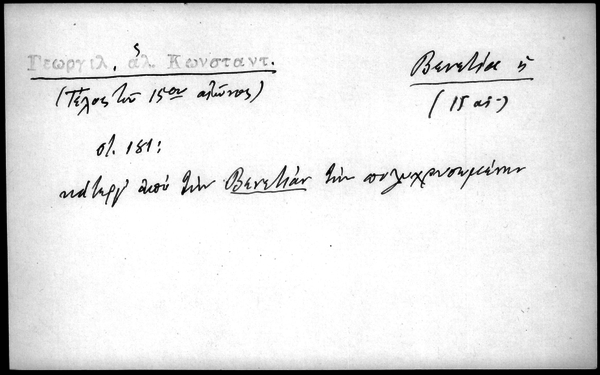 Γεωργιλ. ἁλ. Κωνσταντ.
(Τέλος τοῦ 15ου αἰῶνος)
Βενετία ἡ
(15 αἰ.)
στ. 181:
κάτεργ' ἀπὸ τὴν Βενετιάν τὴν πολυχρυσωμένην